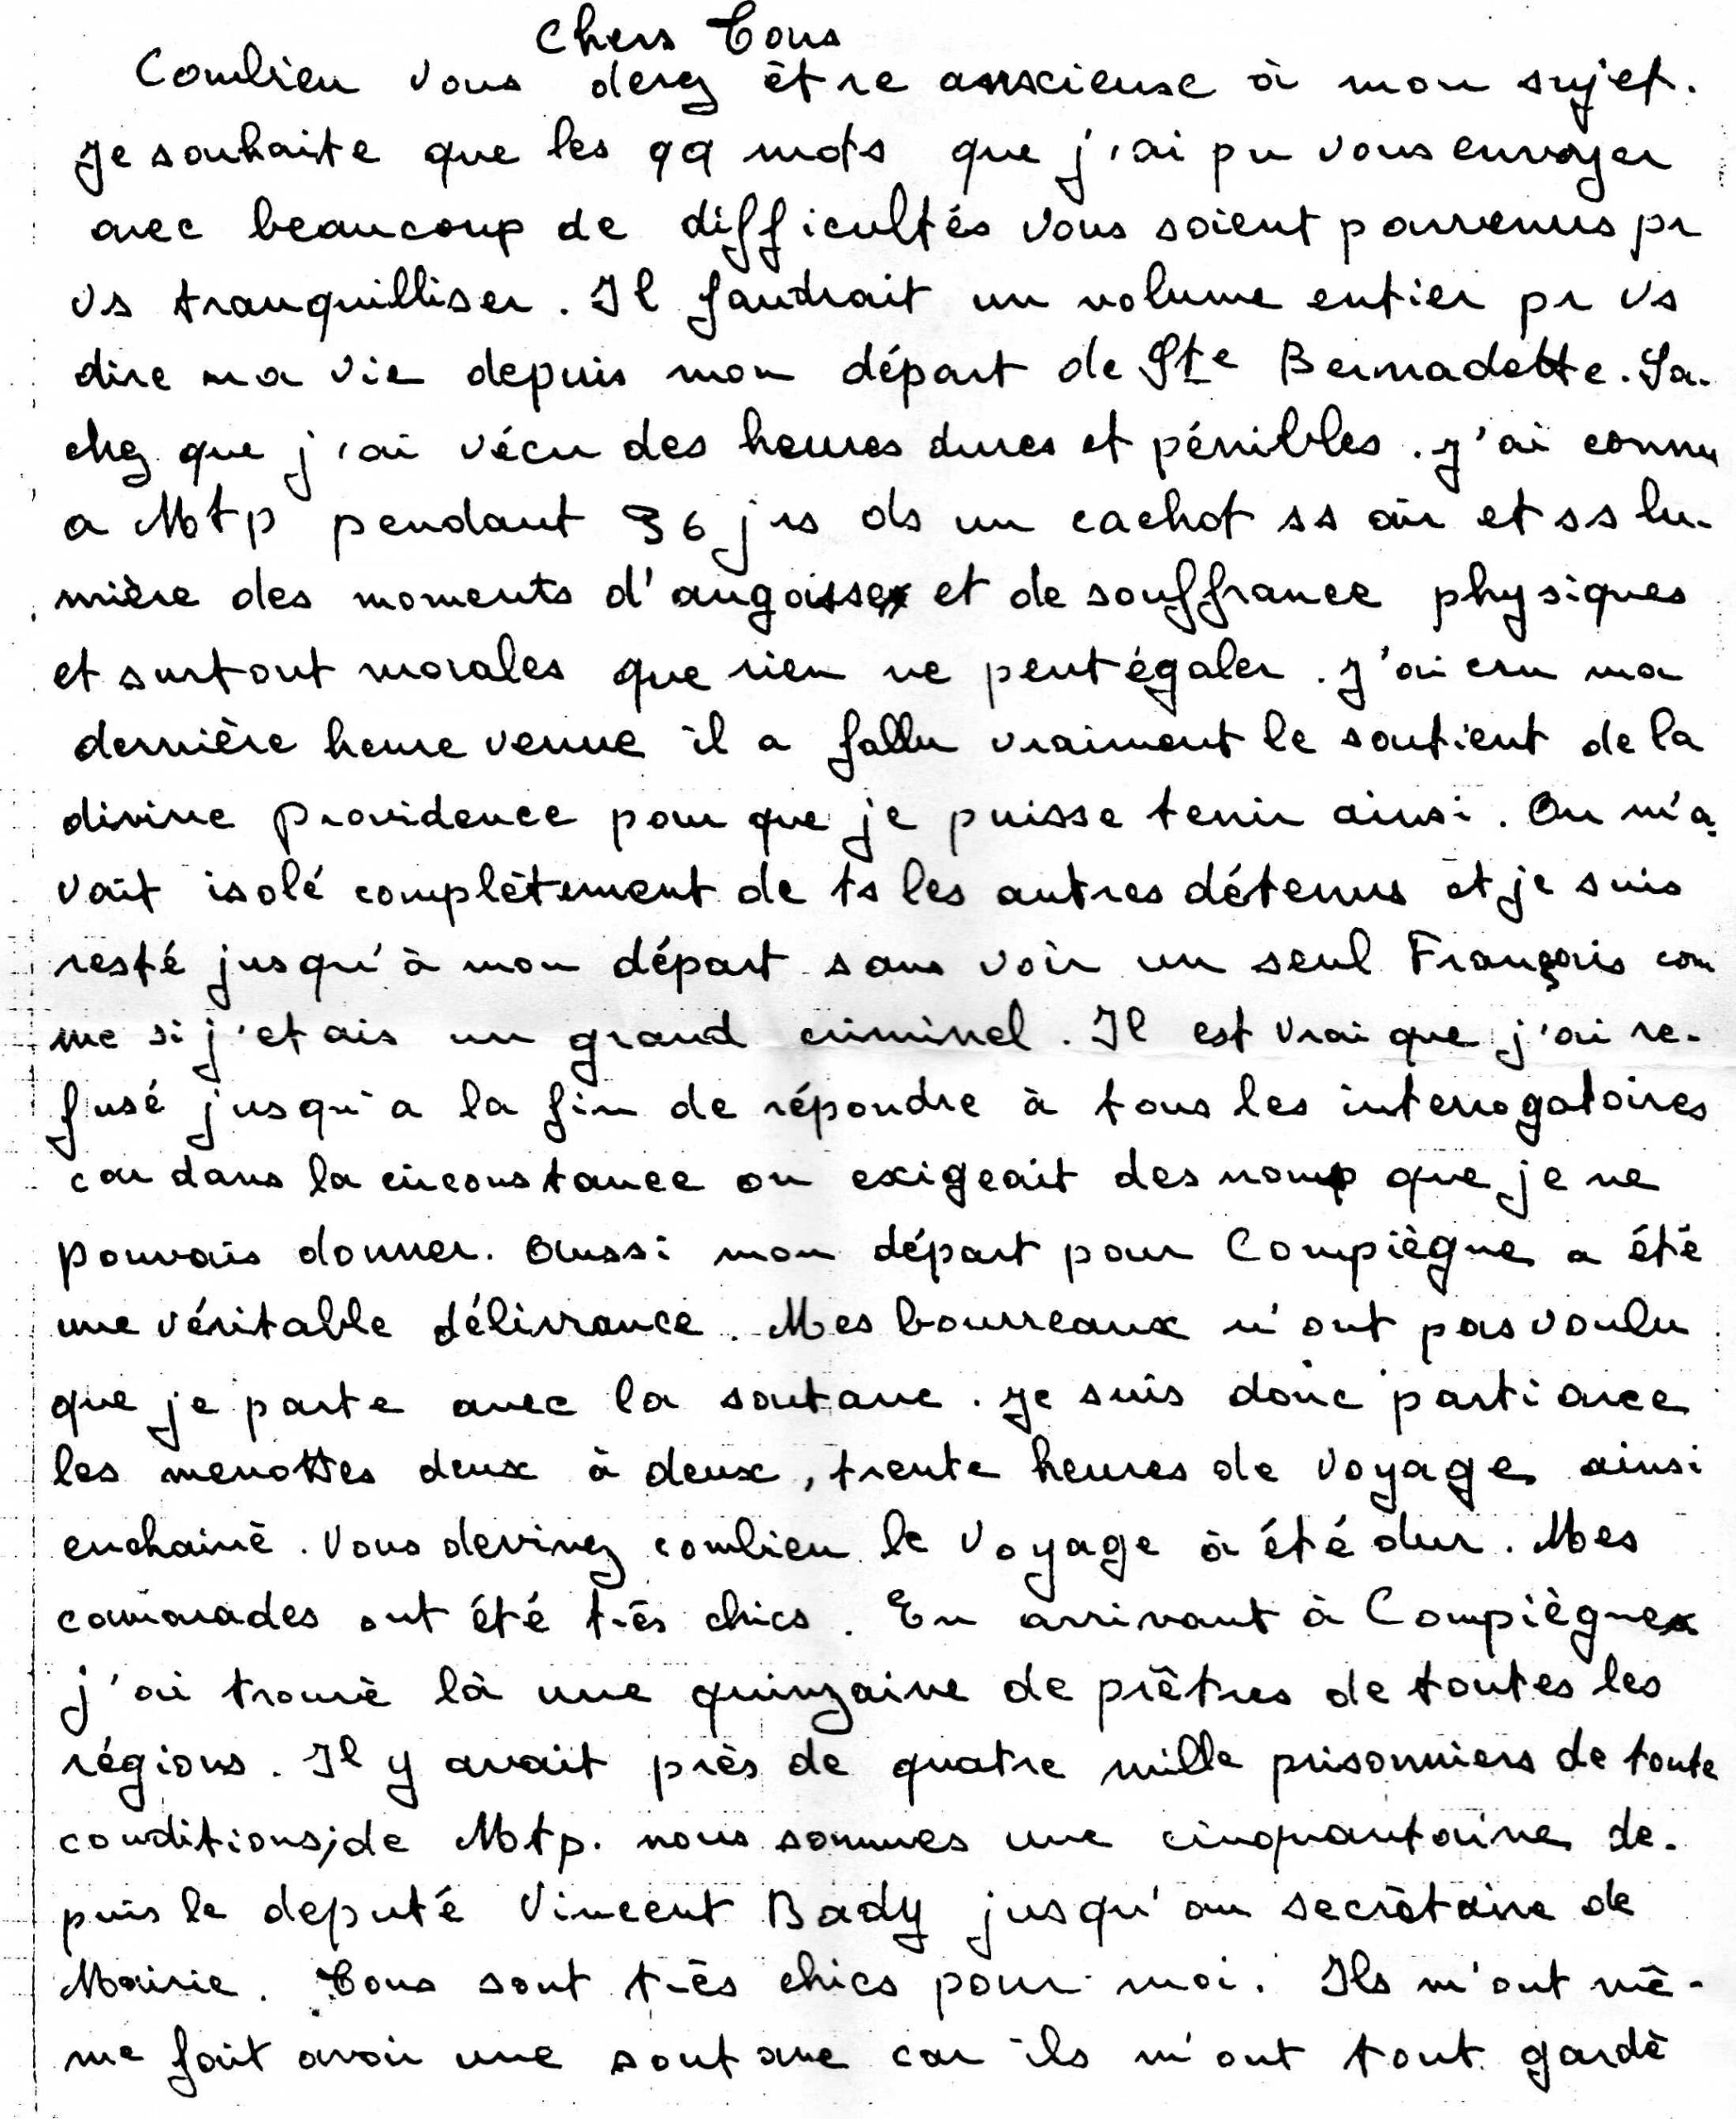 Chers Tous
Combien vous devez être anxcieuse à mon sujet.
Je souhaite que les qq mots que j'ai pu vous envoyer
avec beaucoup de difficultés vous soient parvenus pr
vs tranquilliser. Il faudrait un volume entier pr vs
dire ma vie depuis mon départ de Ste Bernadette. Sa-
chez que j'ai vécu des heures dures et pénibles. J'ai connu
a Mtp pendant 36 jrs ds un cachot ss air et ss lu-
mière des moments d'angoisse et de souffrance physiques
et surtout morales que rien ne peut égaler. J'ai cru ma
dernière heure venue il a fallu vraiment le soutient de la
divine providence pour que je puisse tenir ainsi. On m'a
vait isolé complètement de ts les autres détenus et je suis
resté jusqu'à mon départ sans voir un seul Français com
me si j'etais un grand criminel. Il est vrai que j'ai re-
fusé jusqu'a la fin de répondre à tous les interrogatoires
car dans la circonstance on exigeait des noms que je ne
pouvais donner. Aussi mon départ pour Compiègne a été
une véritable délivrance. Mes bourreaux n'ont pas voulu
que je parte avec la soutane. Je suis donc parti avec
les menottes deux à deux, trente heures de voyage ainsi
enchainé. Vous devinez combien le voyage à été dur. Mes
camarades ont été très chics. En arrivant à Compiègne
j'ai trouvé là une quinzaine de prêtres de toutes les
régions. Il y avait près de quatre mille prisonniers de toute
conditions; de Mtp. nous sommes une cinquantaine de-
puis le deputé Vincent Bady jusqu'au secrétaire de
Mairie. Tous sont très chics pour moi. Ils m'ont mê-
me fait avoir une soutane car ils m'ont tout gardé